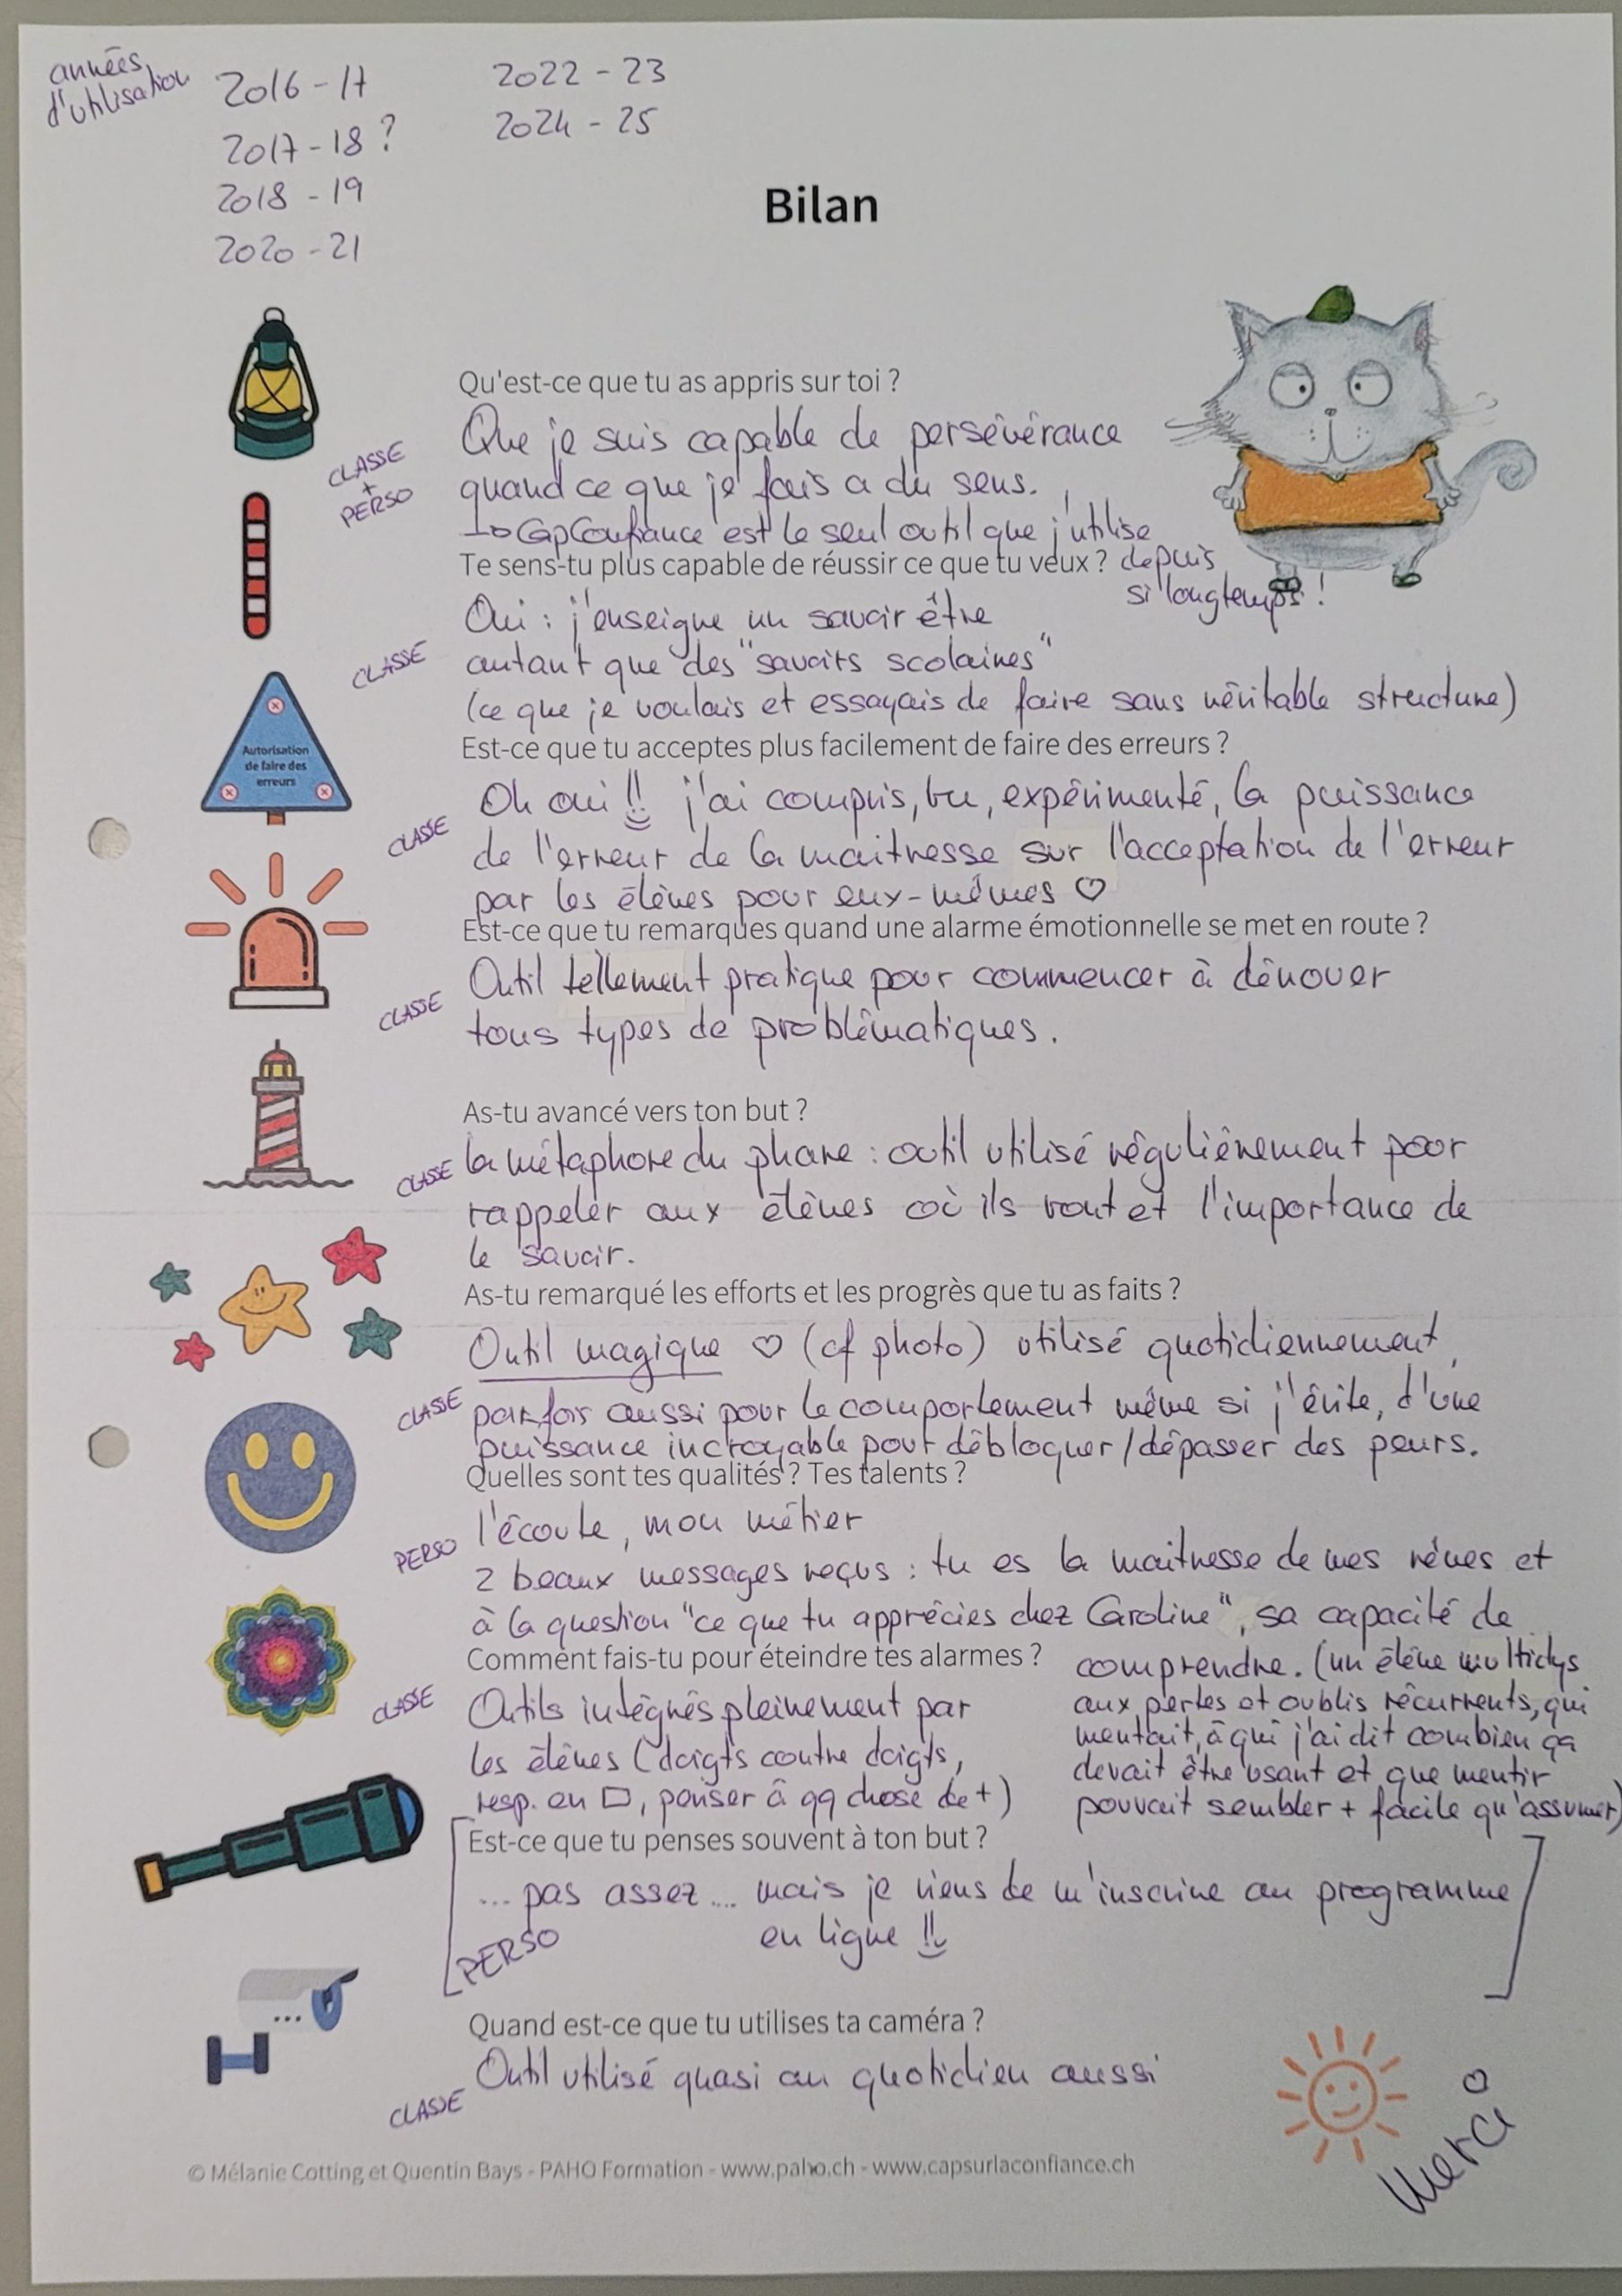 années
d'utilisation
2016 - 17
2017 - 18 ?
2018 - 19
2020 - 21
2022 - 23
2024 - 25
Bilan
Qu'est-ce que tu as appris sur toi ?
CLASSE
+
PERSO
Que je suis capable de persévérance
quand ce que je fais a du sens.
→ CapConfiance est le seul outil que j'utilise
depuis
si longtemps !
Te sens-tu plus capable de réussir ce que tu veux ?
CLASSE
Oui : j'enseigne un savoir être
autant que des "savoirs scolaires"
(ce que je voulais et essayais de faire sans véritable structure)
Autorisation
de faire des
erreurs
Est-ce que tu acceptes plus facilement de faire des erreurs ?
CLASSE
Oh oui !! j'ai compris, vu, expérimenté, la puissance
de l'erreur de la maitresse sur l'acceptation de l'erreur
par les élèves pour eux-mêmes ♡
Est-ce que tu remarques quand une alarme émotionnelle se met en route ?
CLASSE
Outil tellement pratique pour commencer à dénouer
tous types de problématiques.
As-tu avancé vers ton but ?
CLASSE
la métaphore du phare : outil utilisé régulièrement pour
rappeler aux élèves où ils vont et l'importance de
le savoir.
As-tu remarqué les efforts et les progrès que tu as faits ?
CLASSE
Outil magique ♡ (cf photo) utilisé quotidiennement,
parfois aussi pour le comportement même si j'évite, d'une
puissance incroyable pour débloquer/dépasser des peurs.
Quelles sont tes qualités ? Tes talents ?
PERSO
l'écoute, mon métier
2 beaux messages reçus : tu es la maitresse de mes rêves et
à la question "ce que tu apprécies chez Caroline", sa capacité de
comprendre. (un élève multidys
aux pertes et oublis récurrents, qui
mentait, à qui j'ai dit combien ça
devait être usant et que mentir
pouvait sembler + facile qu'assumer)
Comment fais-tu pour éteindre tes alarmes ?
CLASSE
Outils intégrés pleinement par
les élèves (doigts contre doigts,
resp. en □, penser à qq chose de +)
Est-ce que tu penses souvent à ton but ?
... pas assez ... mais je viens de m'inscrire au programme
en ligne !!
PERSO
Quand est-ce que tu utilises ta caméra ?
CLASSE
Outil utilisé quasi au quotidien aussi
Merci
© Mélanie Cotting et Quentin Bays - PAHO Formation - www.paho.ch - www.capsurlaconfiance.ch